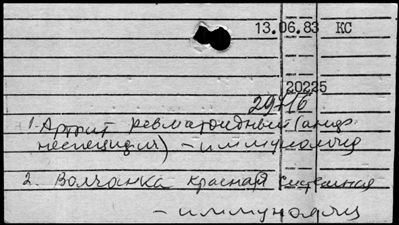 13.06.83 КС
20225
29716
1. Артрит ревматоидный (
) – иммунология
2. Волчанка красная системная
– иммунология